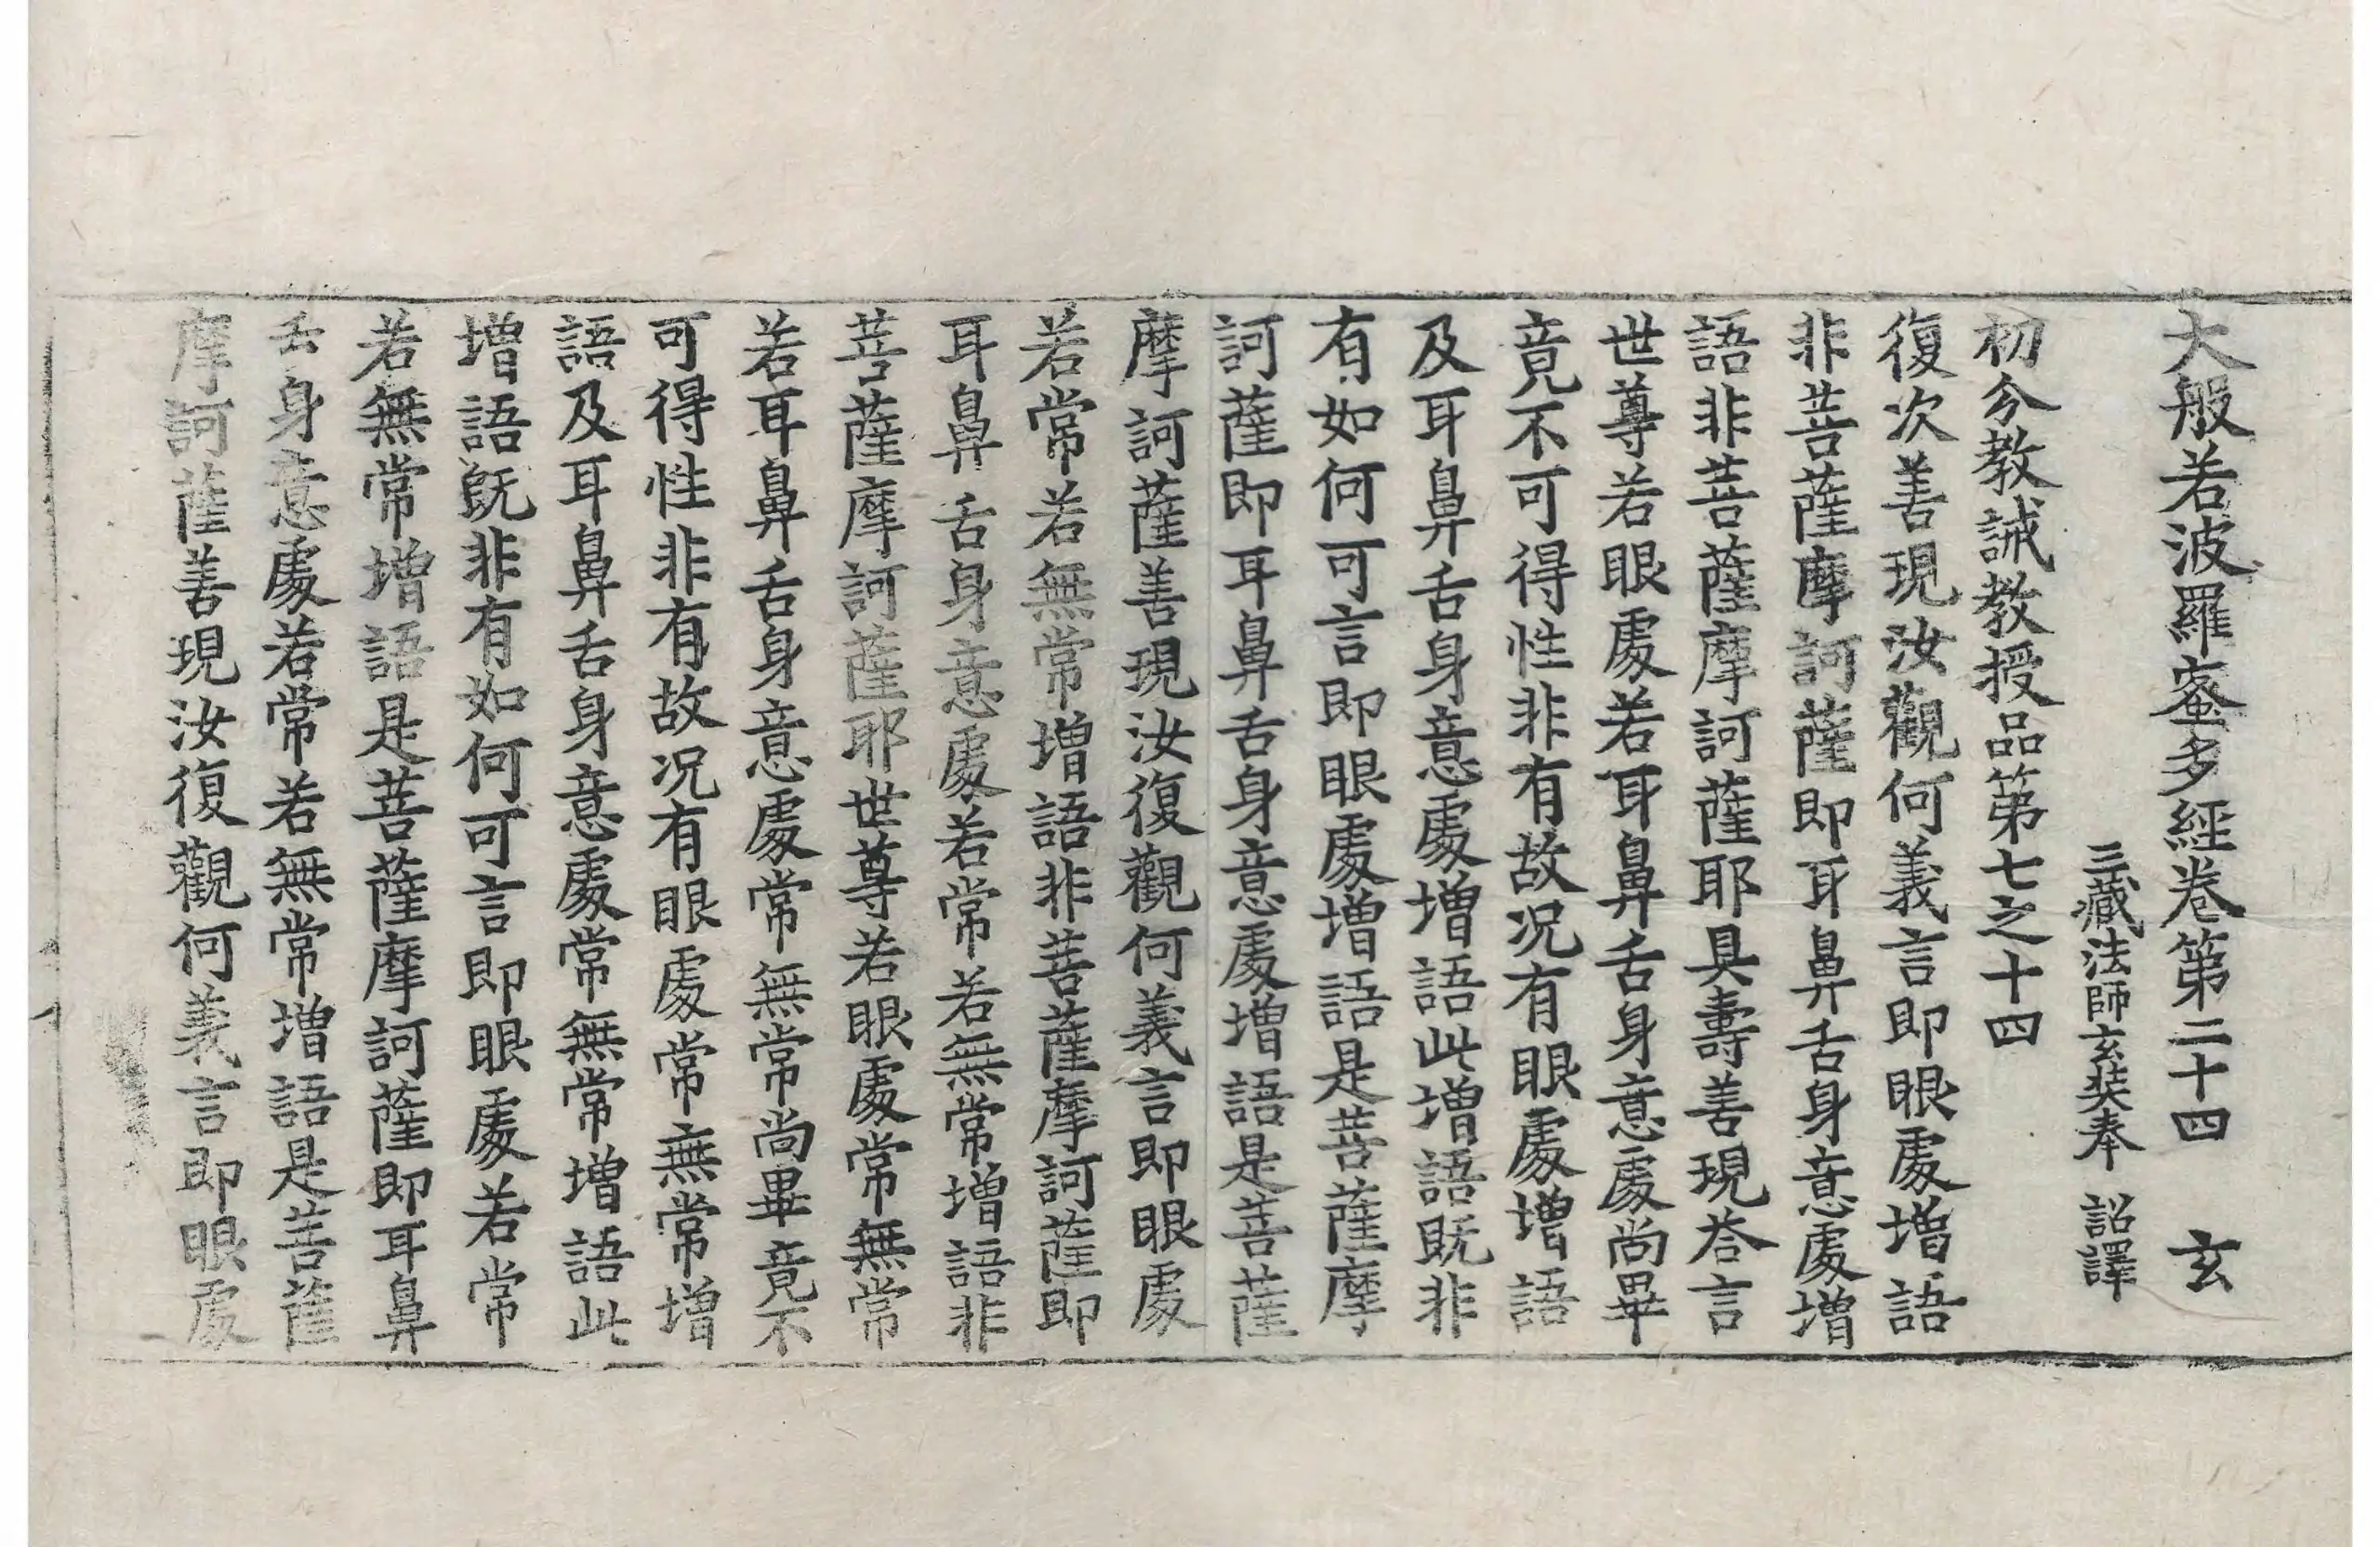 大般若波羅蜜多經卷第二十四　玄
三藏法師玄奘奉　詔譯
初分教誡教授品第七之十四
復次善現汝觀何義言即眼處增語
非菩薩摩訶薩即耳鼻舌身意處增
語非菩薩摩訶薩耶具壽善現荅言
世尊若眼處若耳鼻舌身意處尚畢
竟不可得性非有故况有眼處增語
及耳鼻舌身意處增語此增語既非
有如何可言即眼處增語是菩薩摩
訶薩即耳鼻舌身意處增語是菩薩
摩訶薩善現汝復觀何義言即眼處
若常若無常增語非菩薩摩訶薩即
耳鼻舌身意處若常若無常增語非
菩薩摩訶薩耶世尊若眼處常無常
若耳鼻舌身意處常無常尚畢竟不
可得性非有故况有眼處常無常增
語及耳鼻舌身意處常無常增語此
增語既非有如何可言即眼處若常
若無常增語是菩薩摩訶薩即耳鼻
舌身意處若常若無常增語是菩薩
摩訶薩善現汝復觀何義言即眼處